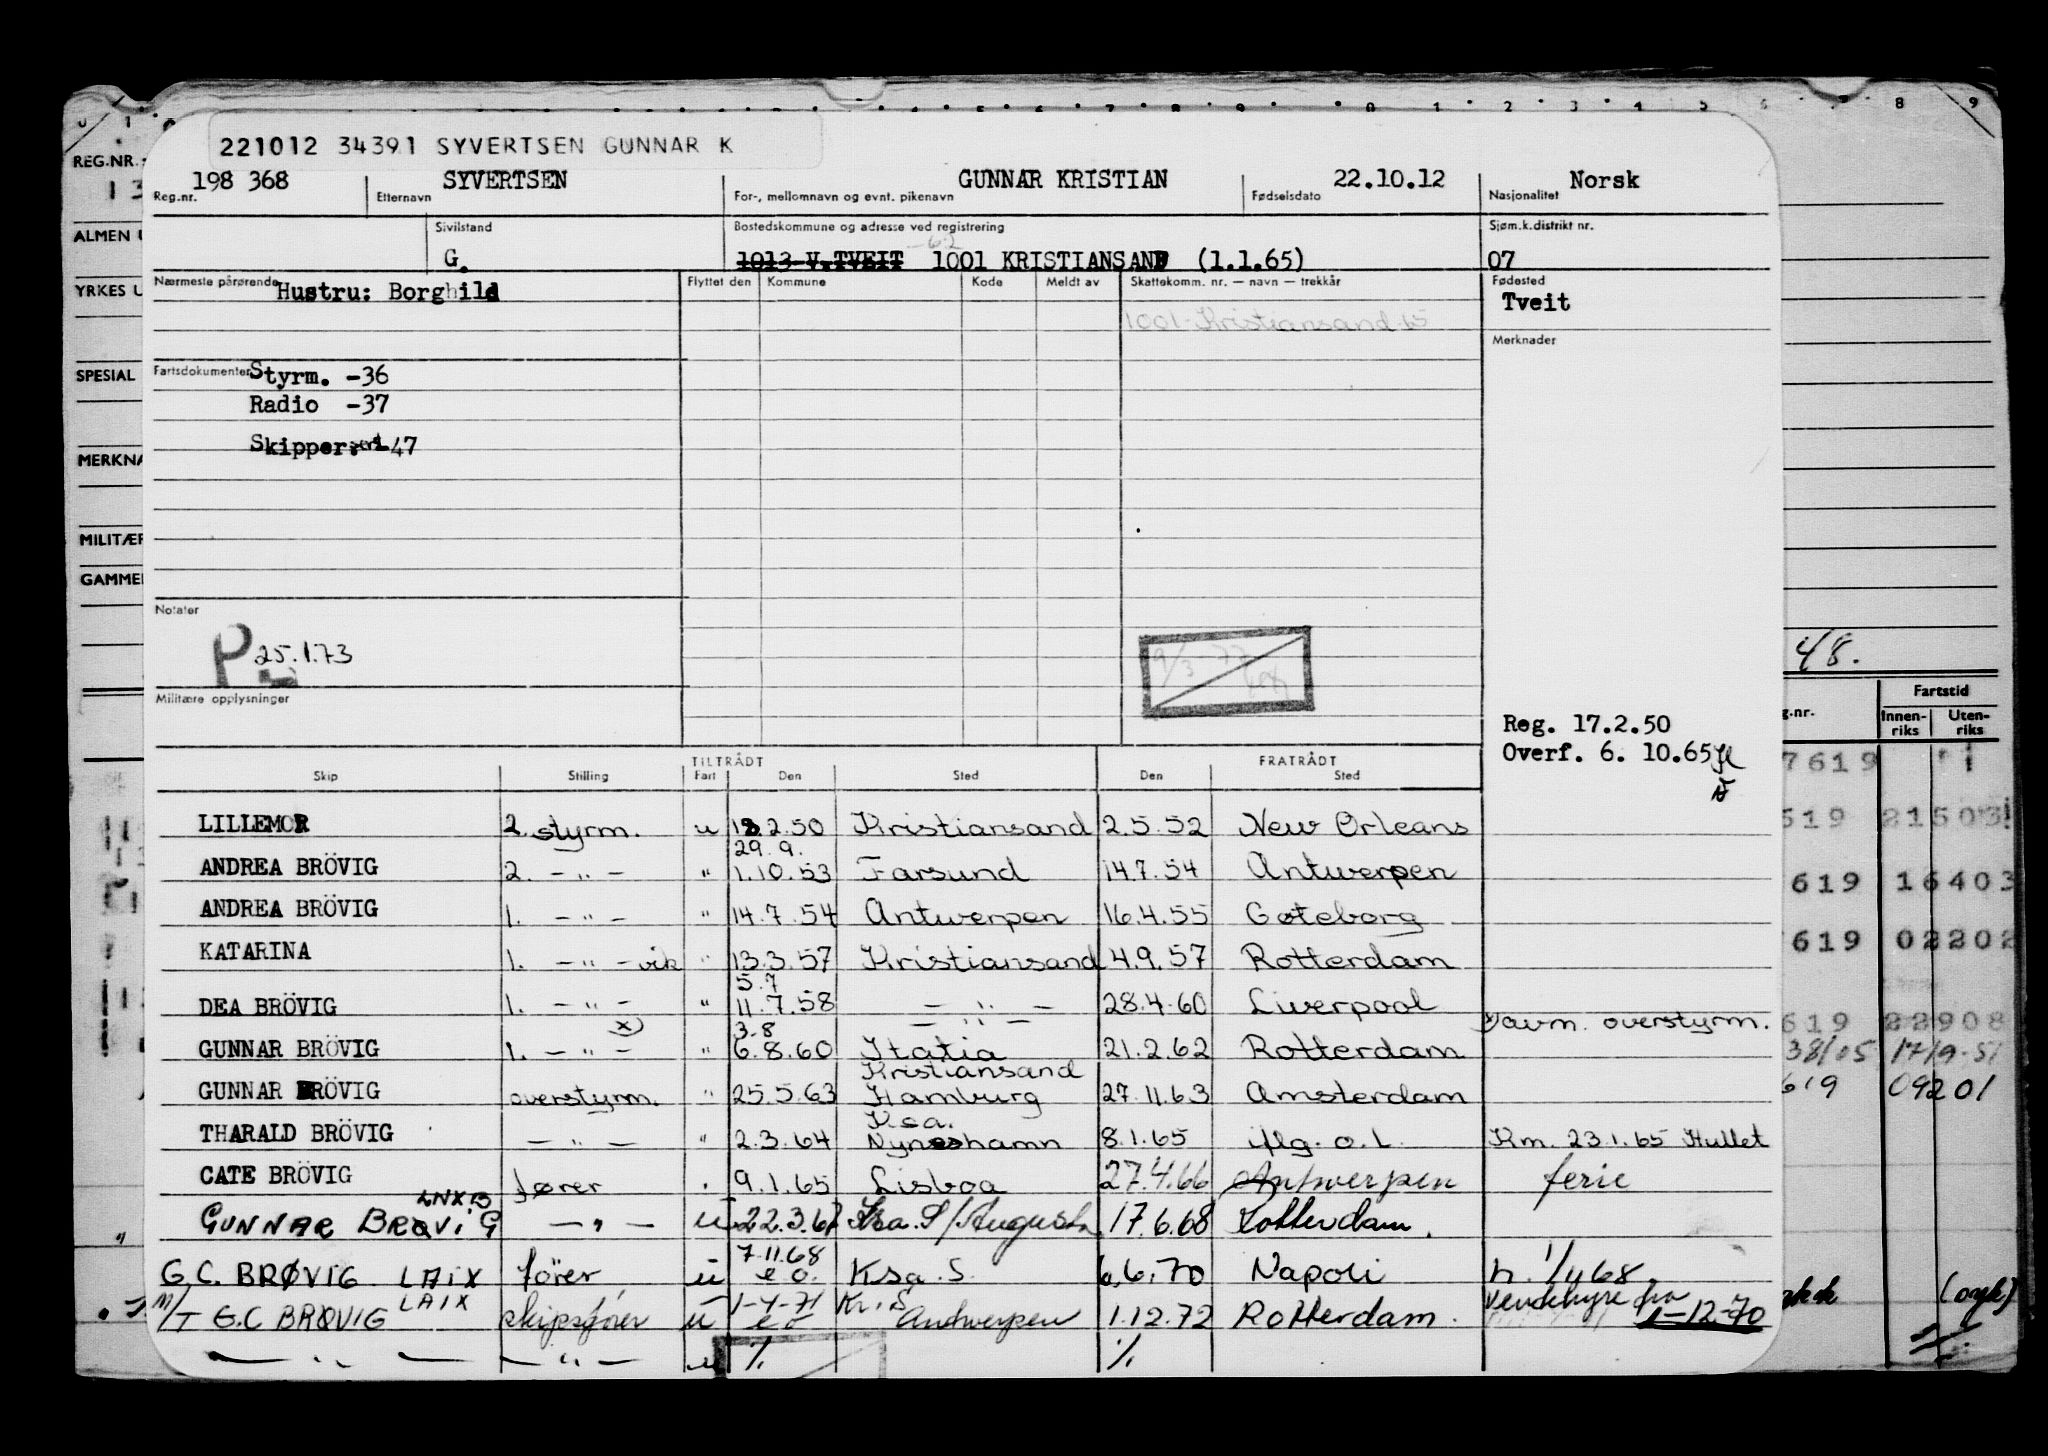 221012 34391 SYVERTSEN GUNNAR K
198 368 SYVERTSEN GUNNAR KRISTIAN 22.10.12 Norsk
Reg.nr. Etternavn For-, mellomnavn og evnt. pikenavn Fødselsdato Nasjonalitet
Sivilstand Bostedskommune og adresse ved registrering Sjøm.k.distrikt nr.
G. 1013 V.TVEIT 1001 KRISTIANSAND (1.1.65) 07
Nærmeste pårørende Hustru: Borghild Flyttet den Kommune Kode Meldt av Skattekomm. nr. — navn — trekkår Fødested
Tveit
1001-Kristiansand-65
Merknader
Fartsdokumenter Styrm. -36
Radio -37
Skipper: -47
Notater
P 25.1.73
Militære opplysninger
Reg. 17.2.50
Overf. 6. 10.65
TILTRÅDT FRATRÅDT
Skip Stilling Fart Den Sted Den Sted
LILLEMOR 2. styrm. u 18.2.50 Kristiansand 2.5.52 New Orleans
29.9.
ANDREA BRÖVIG 2. -"- " 1.10.53 Farsund 14.7.54 Antwerpen
ANDREA BRÖVIG 1. -"- " 14.7.54 Antwerpen 16.4.55 Gøteborg
KATARINA 1. -"- vik " 13.3.57 Kristiansand 4.9.57 Rotterdam
5.7
DEA BRÖVIG 1. -"- " 11.7.58 -"- 28.4.60 Liverpool
x) 3.8 -"- x) avm. overstyrm.
GUNNAR BRÖVIG 1. -"- " 6.8.60 Itatia 21.2.62 Rotterdam
Kristiansand
GUNNAR BRÖVIG overstyrm. " 25.5.63 Hamburg 27.11.63 Amsterdam
Ksa.
THARALD BRÖVIG -"- " 2.3.64 Nyneshamn 8.1.65 iflg. o.l. Km. 23.1.65 Hullet
CATE BRÖVIG fører " 9.1.65 Lisboa 27.4.66 Antwerpen ferie
LNXB
GUNNAR BRØViG -"- u 22.3.67 Ksa. S/Augusta 17.6.68 Rotterdam.
7.11.68
G.C. BRØViG LAiX fører u e o. Ksa. S. 6.6.70 Napoli h. 1/11 68
M/T G.C BRØVIG LAIX skipsfører u 1-4-71 Kr. S Antwerpen 1.12.72 Rotterdam. Vendehyre fra 1-12-70
e o
-"- -"- u % %
REG.NR.
13
ALMEN
YRKES U
SPESIAL
MERKNA
MILITÆR
GAMMEL
48.
g.nr. Fartstid
Innen-riks Uten-riks
7619
619 21503
619 16403
619 02202
619 22908
38/05 17/9-51
619 09201